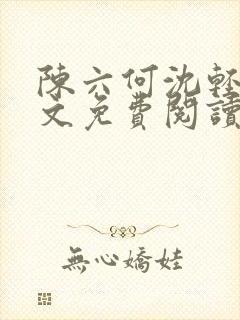 陳六何沈輕
文免費閱讀
無心嬌娃